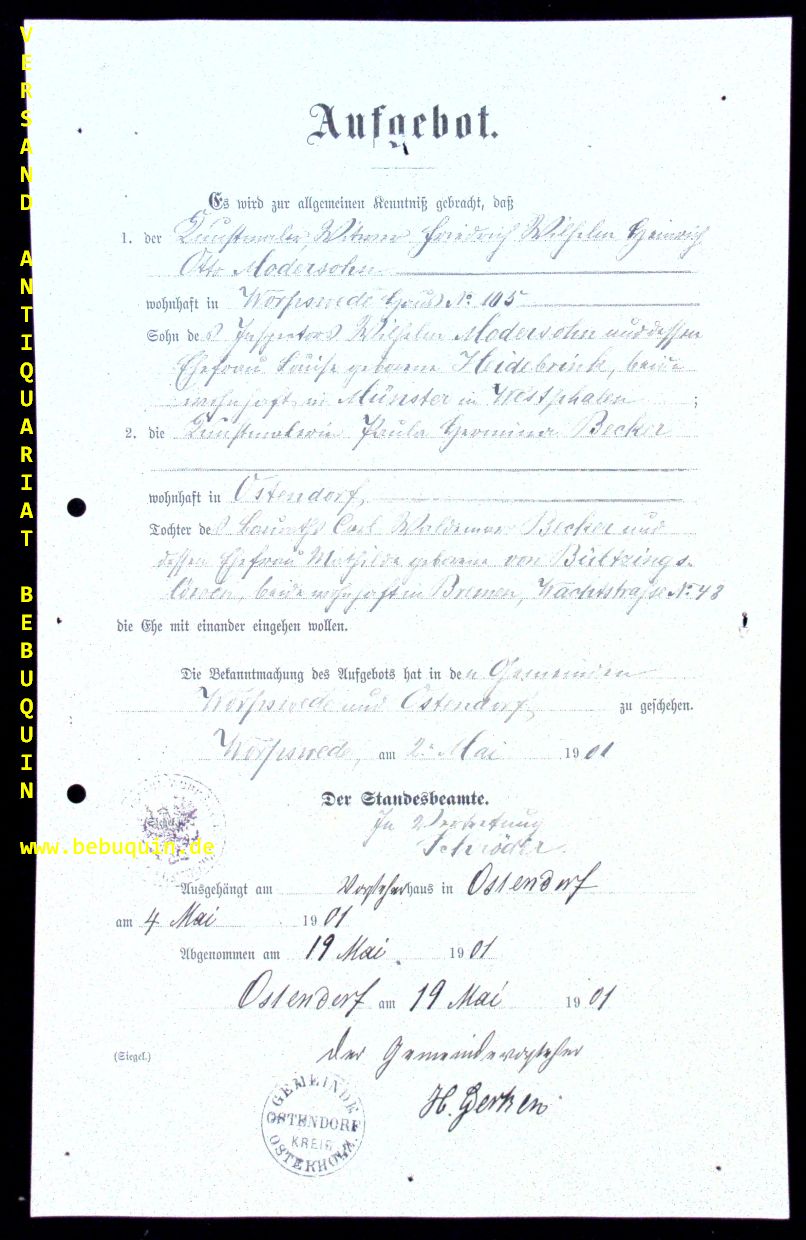 VERSAND ANTIQUARIAT BEBUQUIN
www.bebuquin.de
Aufgebot.
Es wird zur allgemeinen Kenntniß gebracht, daß
1. der Kunstmaler, Witwer Friedrich Wilhelm Heinrich
Otto Modersohn
wohnhaft in Worpswede Haus No. 105
Sohn des Inspectors Wilhelm Modersohn und dessen
Ehefrau Louise geborene Heidebrink, beide
wohnhaft in Münster in Westphalen ;
2. die Kunstmalerin Paula Hermine Becker
wohnhaft in Ostendorf,
Tochter des Bauraths Carl Woldemar Becker und
dessen Ehefrau Mathilde geborene von Bültzings-
löwen, beide wohnhaft in Bremen, Wachtstraße No. 43
die Ehe mit einander eingehen wollen.
Die Bekanntmachung des Aufgebots hat in den Gemeinden
Worpswede und Ostendorf zu geschehen.
Worpswede, am 2. Mai 1901
Der Standesbeamte.
In Vertretung
Schröder.
(Siegel.)
Ausgehängt am Vorsteherhaus in Ostendorf
am 4 Mai 1901
Abgenommen am 19 Mai 1901
Ostendorf am 19 Mai 1901
(Siegel.) Der Gemeindevorsteher
H. Gerken
GEMEINDE
OSTENDORF
KREIS
OSTERHOLZ.